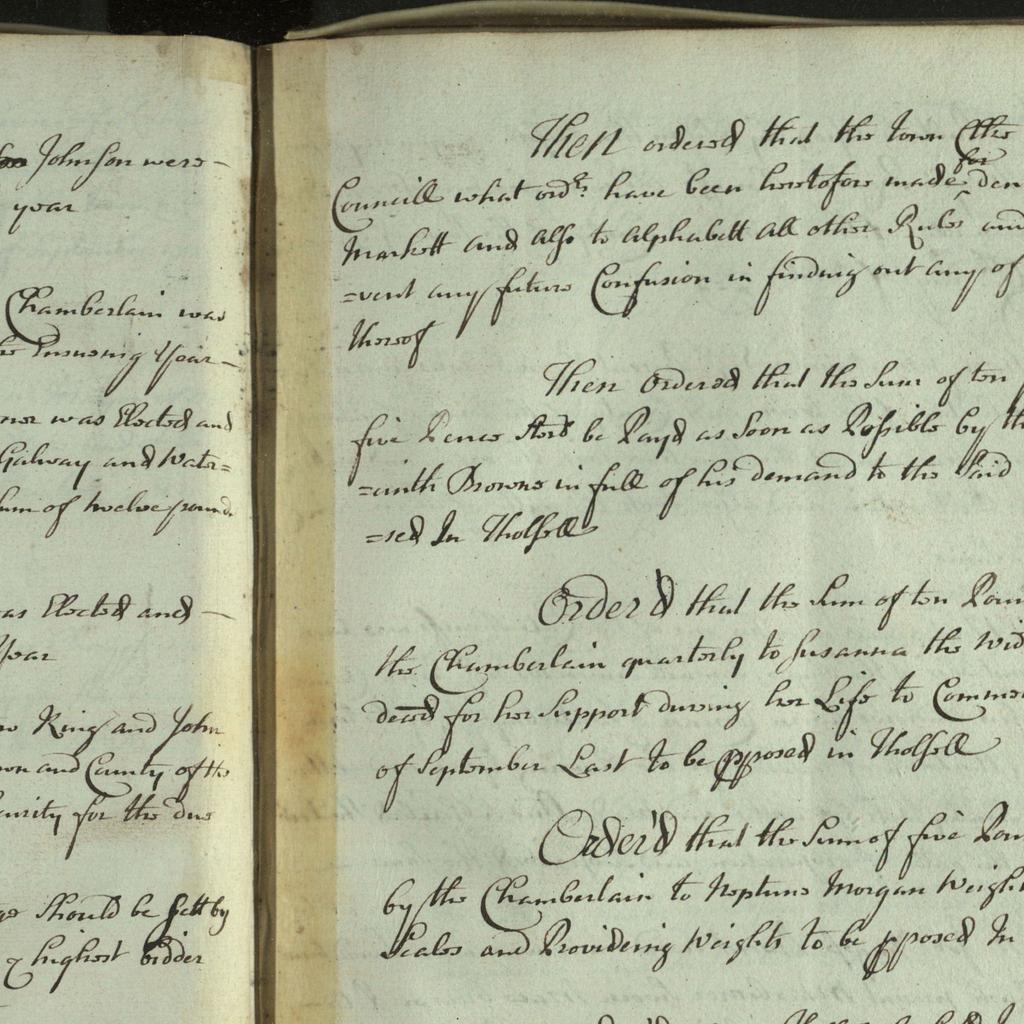 Johnson were
year
Chamberlain was
Ensueing Year
was Elected and
Galway and Water=
Sum of twelve pounds
as Elected and
Year
King and John
and County of the
for the due
Should be Sett by
highest bidder
Then ordered that the Town Clk the
Councill what ordrs. have been heretofore made for den
Markett and also to Alphabett all other Rules and
=vent any future Confusion in finding out any of
thereof
Then Ordered that the Sum of ten
five Pence Sterd be Payd as Soon as Possible by th
=cinth Browne in full of his demand to the Said
=sed In Tholsell
Order'd that the Sum of ten Poun
the Chamberlain quarterly to Susanna the Wid
deced for her Support during her Life to Comme
of September Last to be pposed in Tholsell
Order'd that the Sum of five Poun
by the Chamberlain to Neptune Morgan Weigh
Scales and Provideing Weights to be pposed In